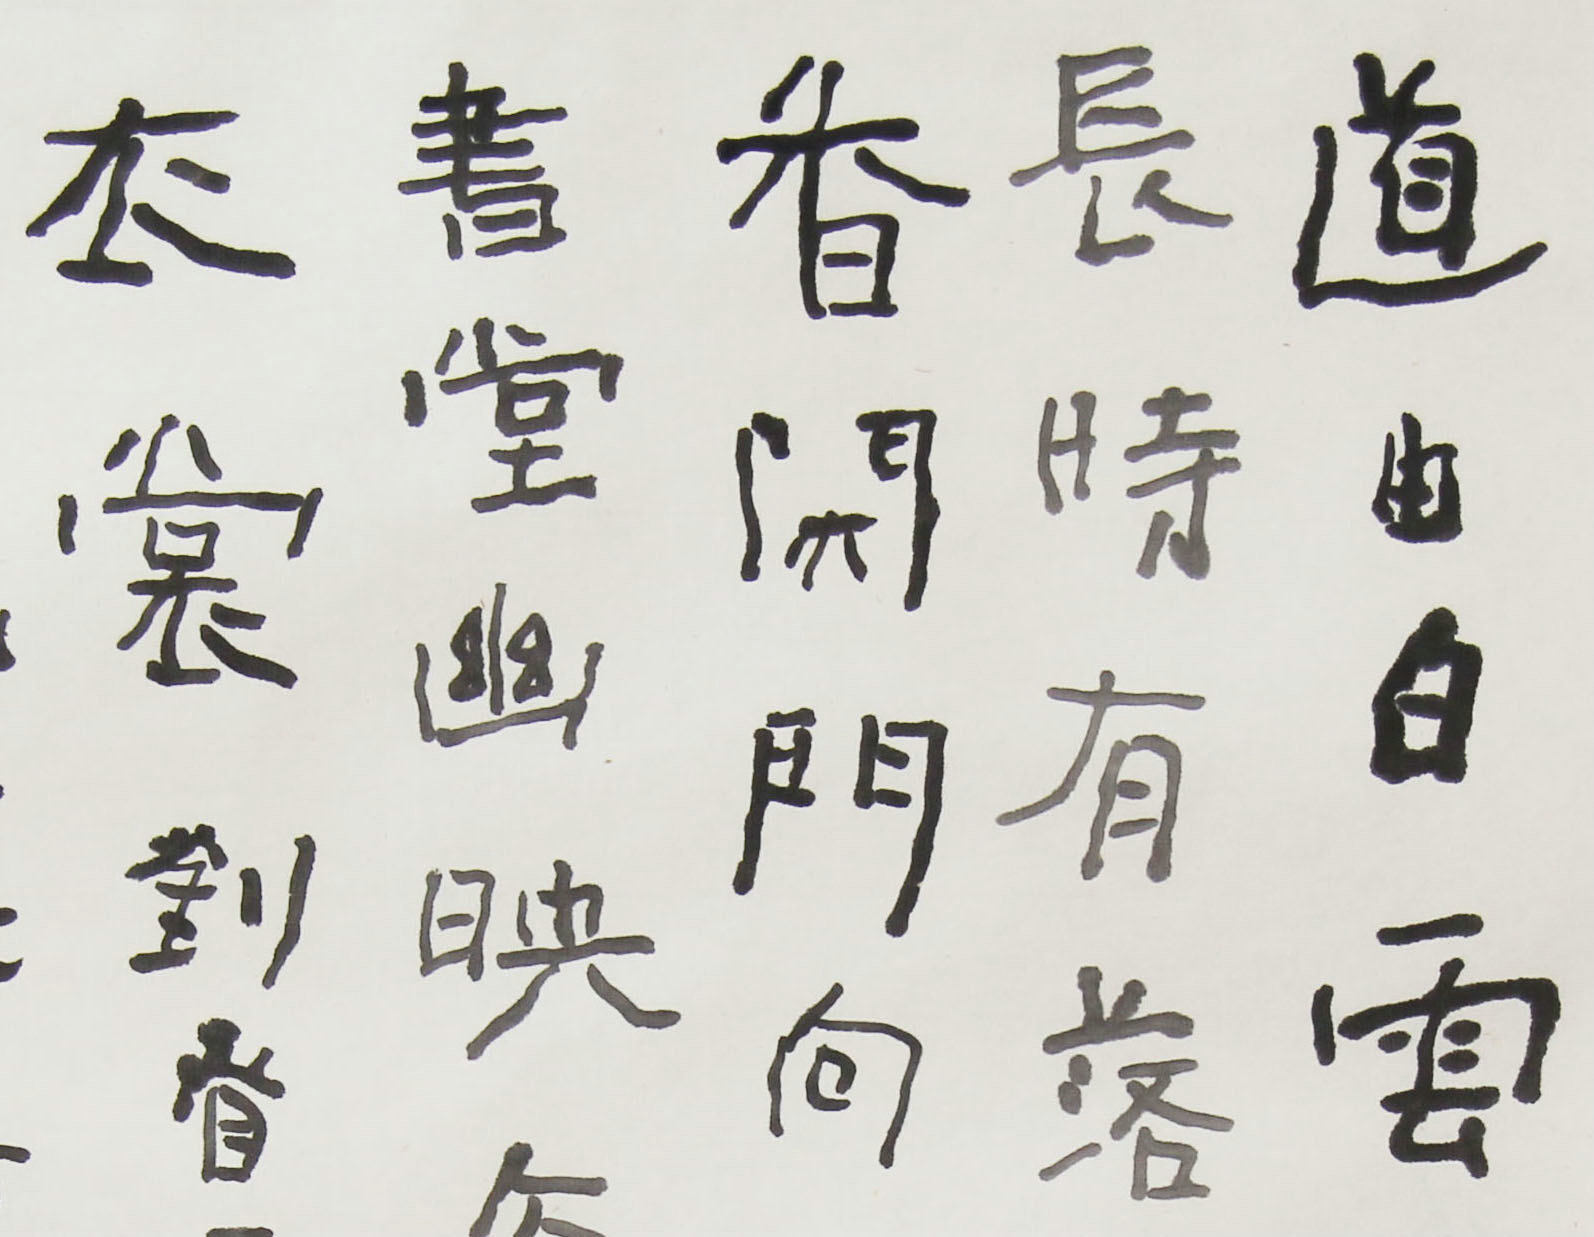 道由白雲
長時有落
香開門向
書堂幽映
衣裳劉眘